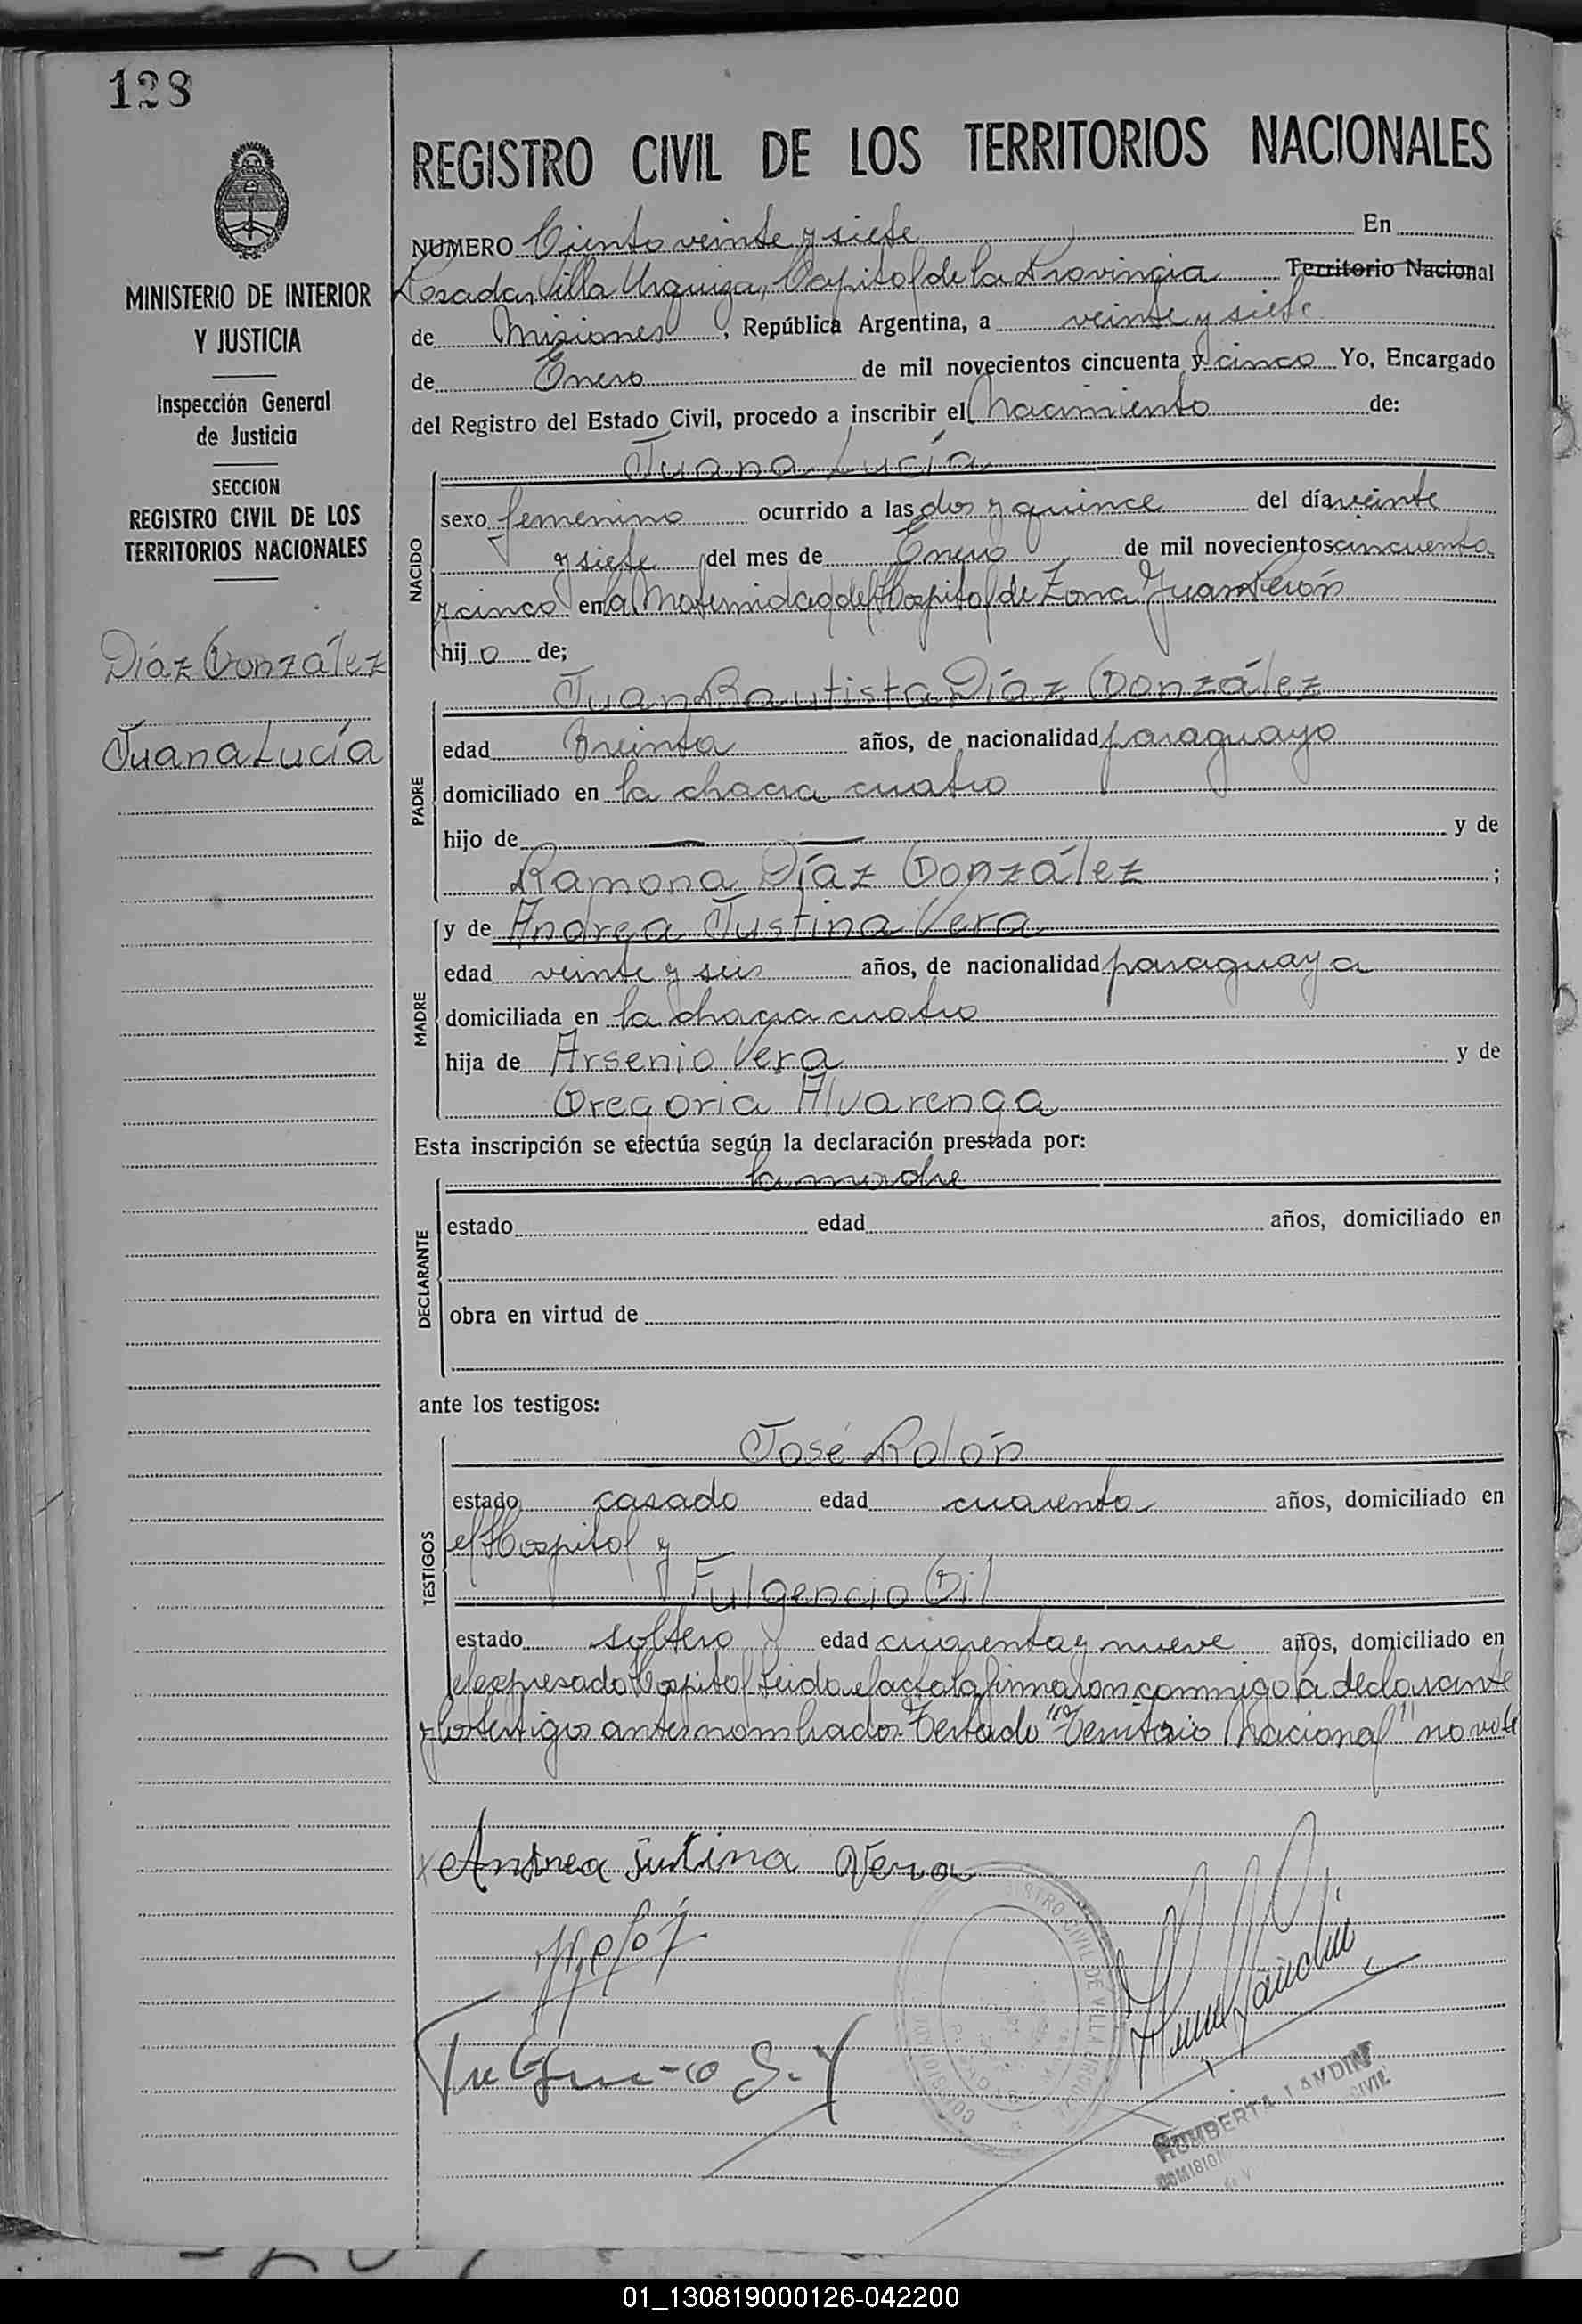 128
MINISTERIO DE INTERIOR
Y JUSTICIA
Inspección General
de Justicia
SECCION
REGISTRO CIVIL DE LOS
TERRITORIOS NACIONALES
Díaz González
Juana Lucía
REGISTRO CIVIL DE LOS TERRITORIOS NACIONALES
NUMERO Ciento veinte y siete En
Posadas Villa Urquiza, Capital de la Provincia Territorio Nacional
de Misiones, República Argentina, a veinte y siete
de Enero de mil novecientos cincuenta y cinco Yo, Encargado
del Registro del Estado Civil, procedo a inscribir el Nacimiento de:
Juana Lucía
NACIDO
sexo femenino ocurrido a las dos y quince del día veinte
y siete del mes de Enero de mil novecientos cincuenta
y cinco en la Maternidad del Hospital de Zona Juan Perón
hij a de;
Juan Bautista Díaz González
PADRE
edad treinta años, de nacionalidad paraguayo
domiciliado en la chacra cuatro
hijo de — — y de
Ramona Díaz González ;
y de Andrea Justina Vera
MADRE
edad veinte y seis años, de nacionalidad paraguaya
domiciliada en la chacra cuatro
hija de Arsenio Vera y de
Gregoria Alvarenga
Esta inscripción se efectúa según la declaración prestada por:
la madre
DECLARANTE
estado edad años, domiciliado en
obra en virtud de
ante los testigos:
José Rolón
TESTIGOS
estado casado edad cuarenta años, domiciliado en
el Hospital y
Fulgencio Gil
estado soltero edad cuarenta y nueve años, domiciliado en
el expresado Hospital Leida el acta la firmaron conmigo la declarante
y los testigos antes nombrados. Testado "Territorio Nacional" no vale
Andrea Justina Vera
REGISTRO CIVIL DE VILLA URQUIZA
POSADAS
HUMBERTA LANDIN
CIVIL
01_130819000126-042200